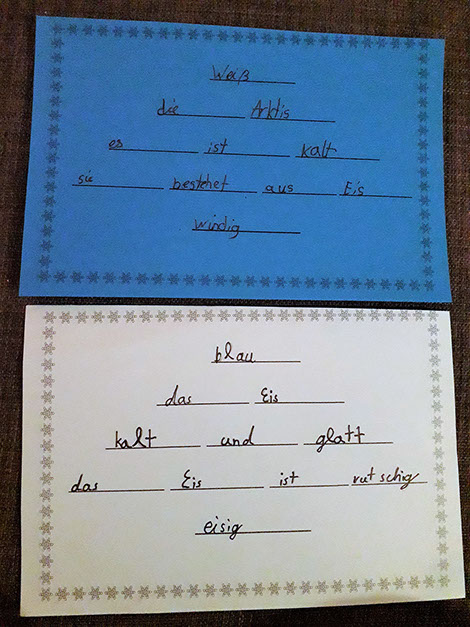 Weiß
die Arktis
es ist kalt
sie bestehet aus Eis
windig
blau
das Eis
kalt und glatt
das Eis ist rutschig
eisig